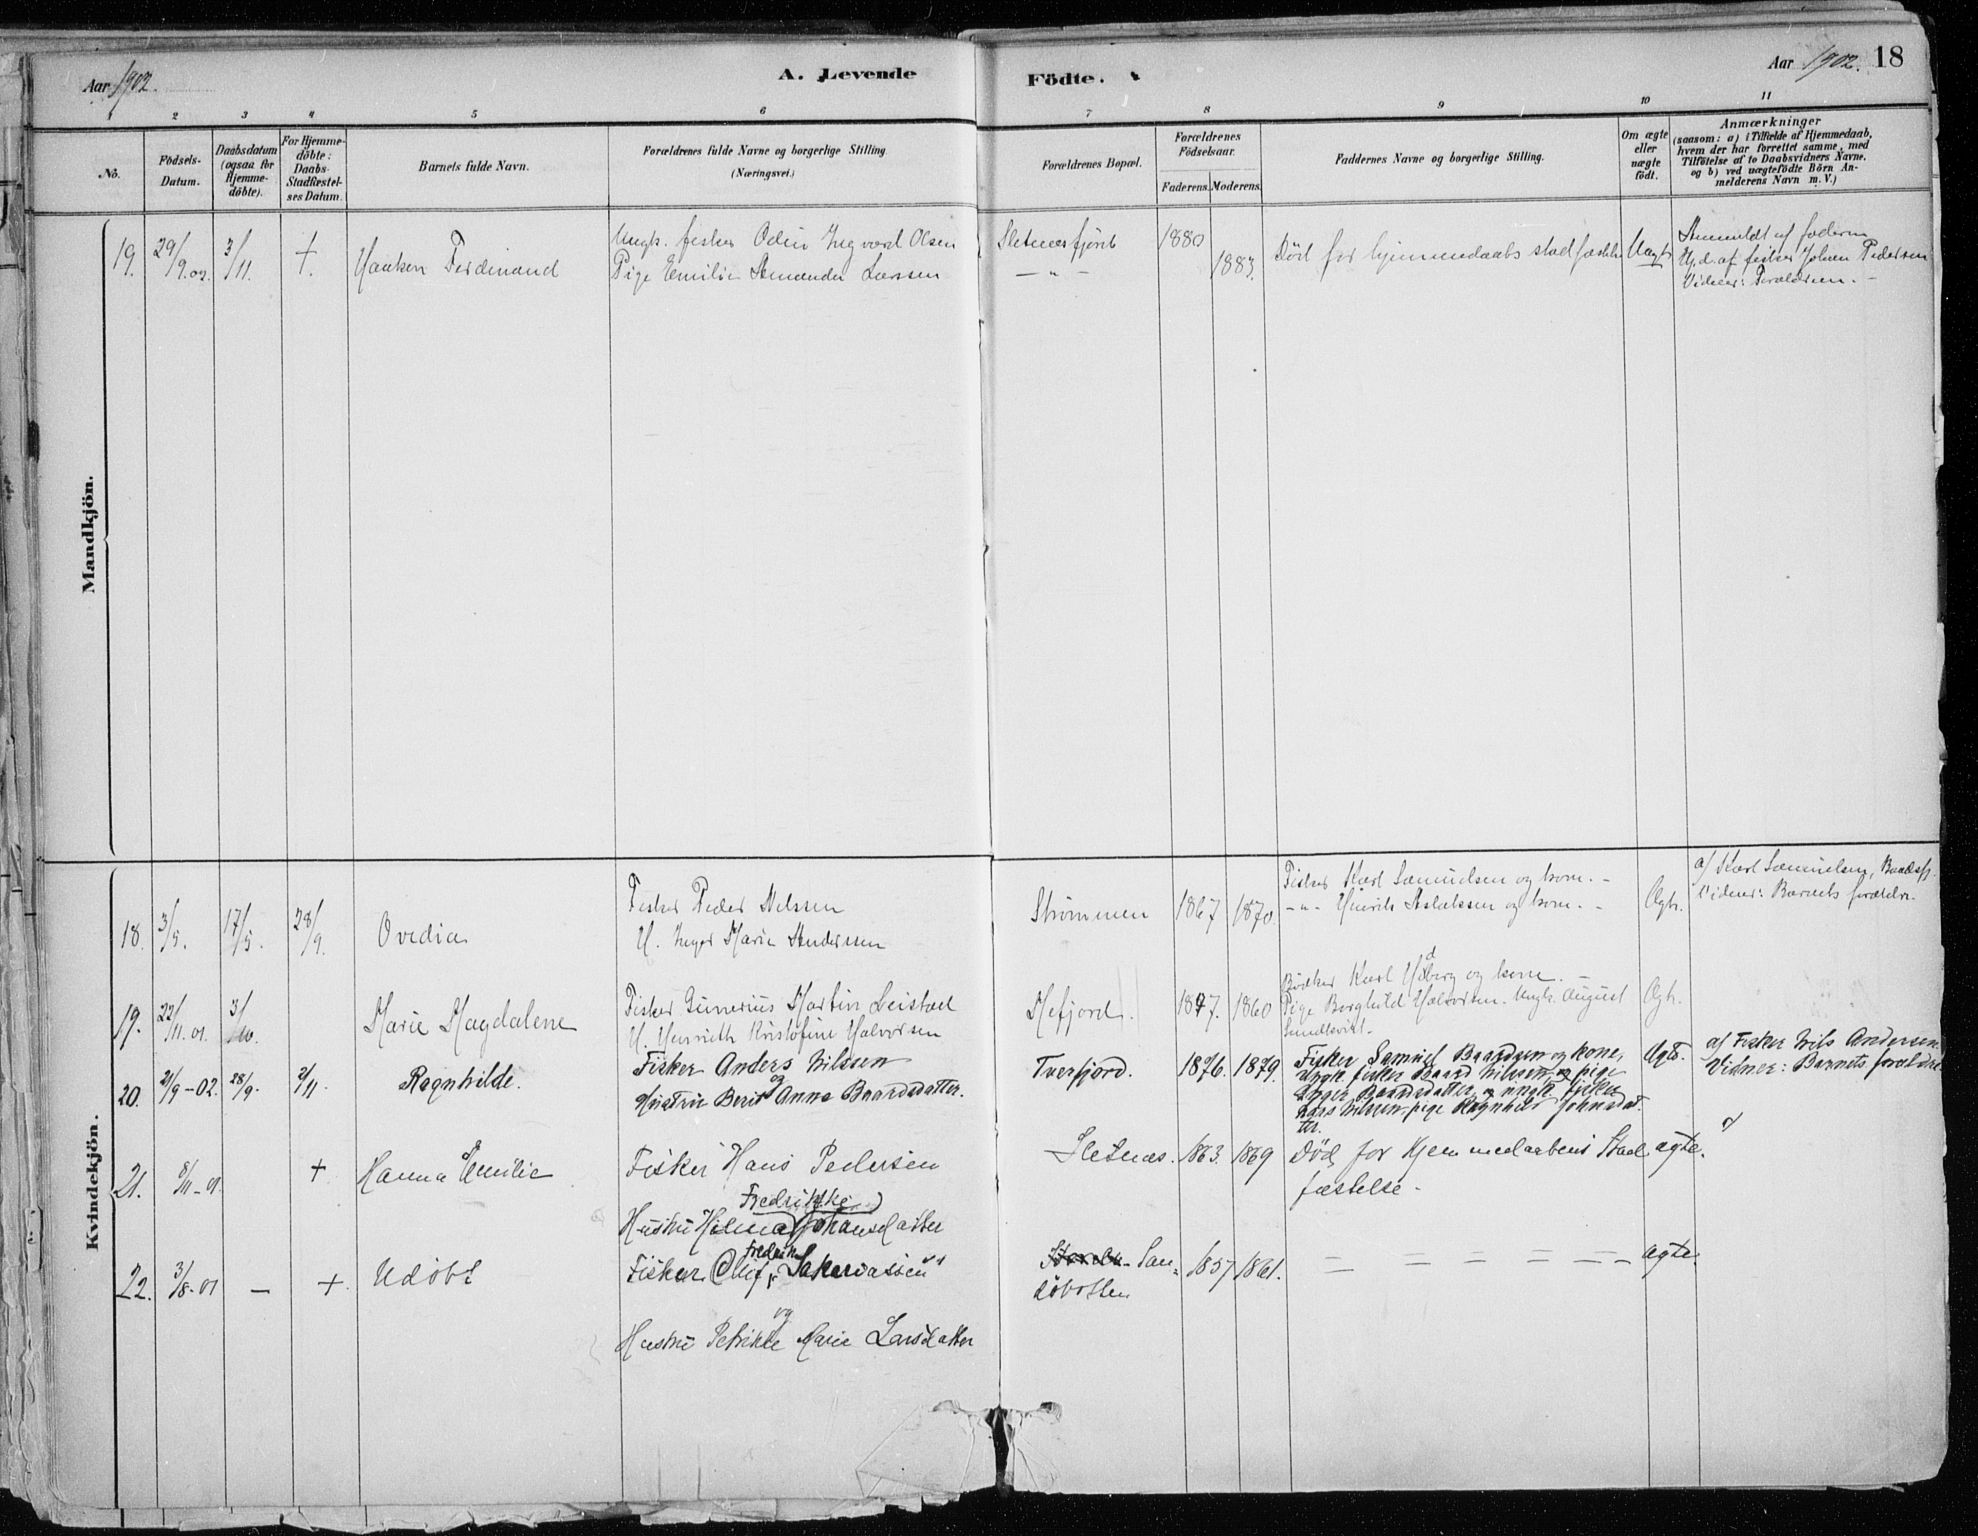 Aar 1902.
A. Levende
Födte.
Aar 1902. 18
1 2 3 4 5 6 7 8 9 10 11
No.
Födsels-
Datum.
Daabsdatum
(ogsaa for
Hjemme-
döbte).
For Hjemme-
döbte:
Daabs-
Stadfæstel-
ses Datum.
Barnets fulde Navn.
Forældrenes fulde Navne og borgerlige Stilling
(Næringsvei.)
Forældrenes Bopæl.
Forældrenes
Födselsaar.
Faderens. Moderens.
Faddernes Navne og borgerlige Stilling.
Om ægte
eller
uægte
födt.
Anmærkninger
(saasom: a) i Tilfælde af Hjemmedaab,
hvem der har forrettet samme, med
Tilföielse af to Daabsvidners Navne.
og b) ved uægtefödte Börn An-
melderens Navn m. V.)
Mandkjön.
19. 29/9.02. 3/11. +. Haakon Ferdinand
Ungk. fisker Odin Ingvard Olsen
Pige Emilie Amanda Larssen
Sletnesfjord
— " —
1880
1883.
Död før hjemmedaabs stadfæstelse
Uægte
Anmeldt af faderen
Hj.d. af fisker Johan Pedersen
Vidner: Forældrene. —
Kvindekjön.
18. 3/5. 17/5. 28/9. Ovedia
Fisker Peder Nilssen
H. Inger Marie Anderssen
Strömmen 1867 1870.
Fisker Karl Samuelsen og kone. -
— " — Henrik Aslakssen og kone. -
Ægte.
a/ Karl Samuelsen,
Vidner: Barnets forældre.
19. 22/11.01. 3/10. Marie Magdalene
Fisker Gunerius Martin Leistad
H. Henriette Kristofine Halvorsen
Mefjord. 1877. 1860
Bödker Karl Hdberg og kone. —
Pige Borghild Halvorsen. Ungk. August
Ægte.
20. 21/9-02. 28/9. 2/11. Ragnhilde.
Fisker Anders Nilssen
og
Hustru Berit Anna Baardsdatter.
Tverfjord. 1876. 1879.
Fisker Samuel Baardsen og kone,
Ungk. fisker Baard Nilssen, og pige
Inger Baardsdatter, og ungk. fisker
Lars Nilsen, pige Ragnhild Johnsdat-
ter.
Ægte.
a/ Fisker Nils Andersen
Vidner: Barnets forældre
21. 8/11-01. + Hanna Emilie
Fisker Hans Pedersen
Fredrikke
Hustru Helma Johansdatter
Sletnæs. 1863. 1869
Död før Hjemmedaabens Stad
fæstelse.
ægte.
a/
22. 3/8-01 — +. Udöbt
Fredrik
Fisker Olif, Sakariassen
og
Hustru Petrikke Marie Larsdatter
San=
döbotten
1857 1861.
— — — — — —
ægte.